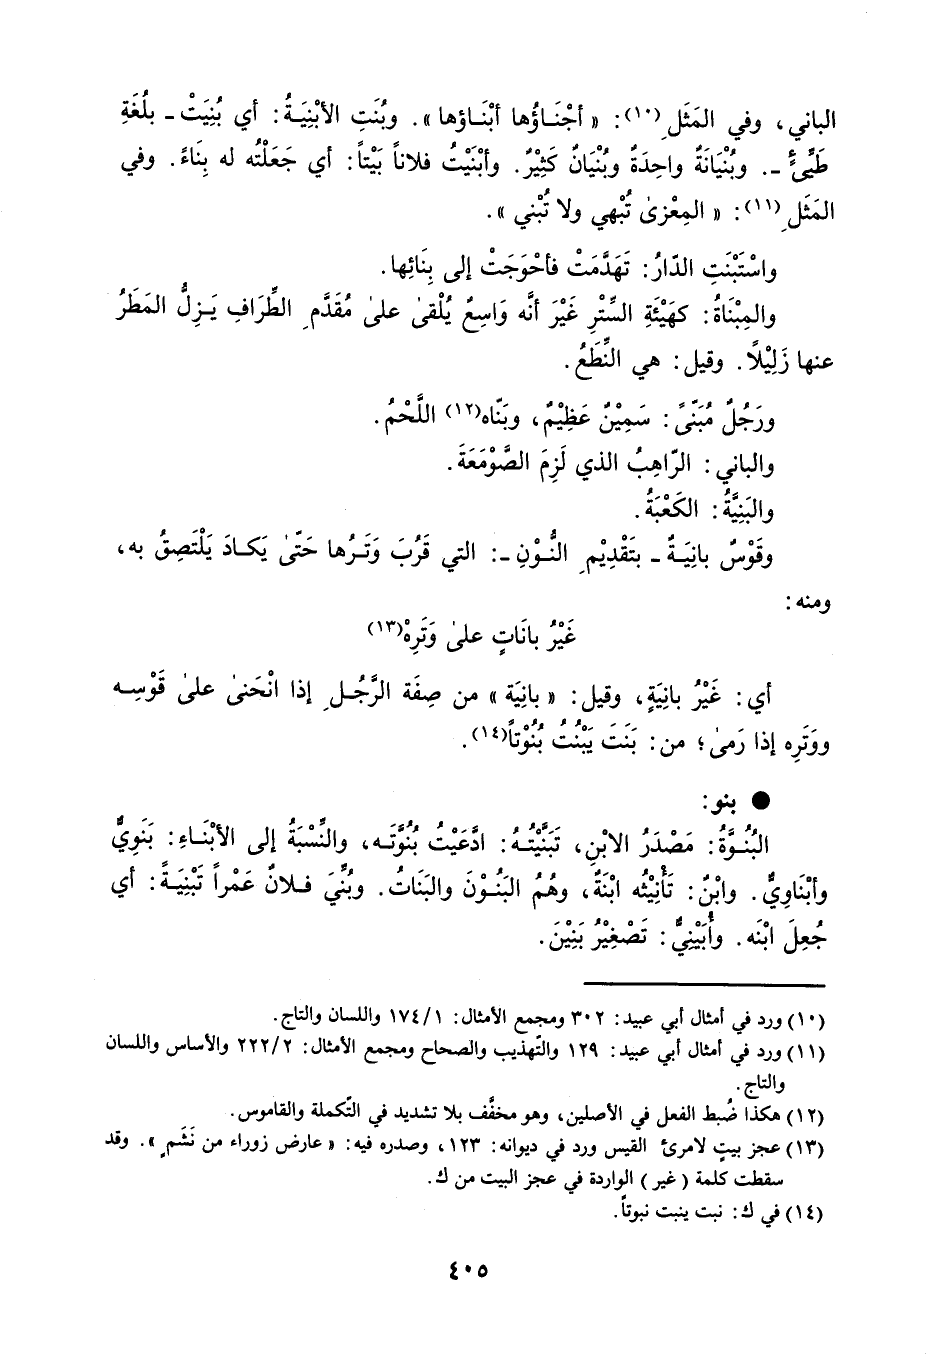 الباني، وفي المَثَلِ(١٠): « أجْنَاؤُها أبْنَاؤها ». وبُنَتِ الأبْنِيَةُ: أي بُنِيَتْ ـ بلُغَةِ
طَيِّئٍ ـ. وبُنْيَانَةٌ واحِدَةٌ وبُنْيَانٌ كَثِيْرٌ. وأبْنَيْتُ فلاناً بَيْتاً: أي جَعَلْتُه له بِنَاءً. وفي
المَثَلِ(١١): « المِعْزىٰ تُبْهي ولا تُبْني ».
واسْتَبْنَتِ الدّارُ: تَهَدَّمَتْ فأحْوَجَتْ إلى بِنَائِها.
والمِبْنَاةُ: كهَيْئَةِ السِّتْرِ غَيْرَ أنَّه وَاسِعٌ يُلْقىٰ علىٰ مُقَدَّمِ الطِّرَافِ يَـزِلُّ المَطَرُ
عنها زَلِيْلًا. وقيل: هي النِّطَعُ.
ورَجُلٌ مُبَنّىً: سَمِيْنٌ عَظِيْمٌ، وبَنّاه(١٢) اللَّحْمُ.
والباني: الرّاهِبُ الذي لَزِمَ الصَّوْمَعَةَ.
والبَنِيَّةُ: الكَعْبَةُ.
وقَوْسٌ بانِيَـةٌ ـ بتَقْدِيْمِ النُّـوْنِ ـ: التي قَرُبَ وَتَـرُها حَتّىٰ يَكـادَ يَلْتَصِقُ به،
ومنه:
غَيْرُ بانَاتٍ علىٰ وَتَرِهْ(١٣)
أي: غَيْرُ بانِيَةٍ، وقيل: « بانِيَة » من صِفَة الرَّجُـلِ إذا انْحَنىٰ علىٰ قَوْسِـه
ووَتَرِه إذا رَمىٰ؛ من: بَنَتَ يَبْنُتُ بُنُوْتاً(١٤).
● بنو:
البُنُـوَّةُ: مَصْدَرُ الابْنِ، تَبَنَّيْتُـهُ: ادَّعَيْتُ بُنُوَّتَـه، والنِّسْبَةُ إلى الأبْنَـاءِ: بَنَوِيٌّ
وأبْنَاوِيٌّ. وابْنٌ: تَأنِيْثُه ابْنَةٌ، وهُمُ البَنُـوْنَ والبَنَاتُ. وبُنِّيَ فـلانٌ عَمْراً تَبْنِيَـةً: أي
جُعِلَ ابْنَه. وأُبَيْنِيٌّ: تَصْغِيْرُ بَنِيْنَ.
(١٠) ورد في أمثال أبي عبيد: ٣٠٢ ومجمع الأمثال: ١٧٤/١ واللسان والتاج.
(١١) ورد في أمثال أبي عبيد: ١٢٩ والتّهذيب والصحاح ومجمع الأمثال: ٢٢٢/٢ والأساس واللسان
والتاج.
(١٢) هكذا ضُبط الفعل في الأصلين، وهو مخفَّف بلا تشديد في التّكملة والقاموس.
(١٣) عجز بيتٍ لامرئ القيس ورد في ديوانه: ١٢٣، وصدره فيه: « عارض زوراء من نَشَمٍ ». وقد
سقطت كلمة ( غير ) الواردة في عجز البيت من ك.
(١٤) في ك: نبت ينبت نبوتاً.
٤٠٥